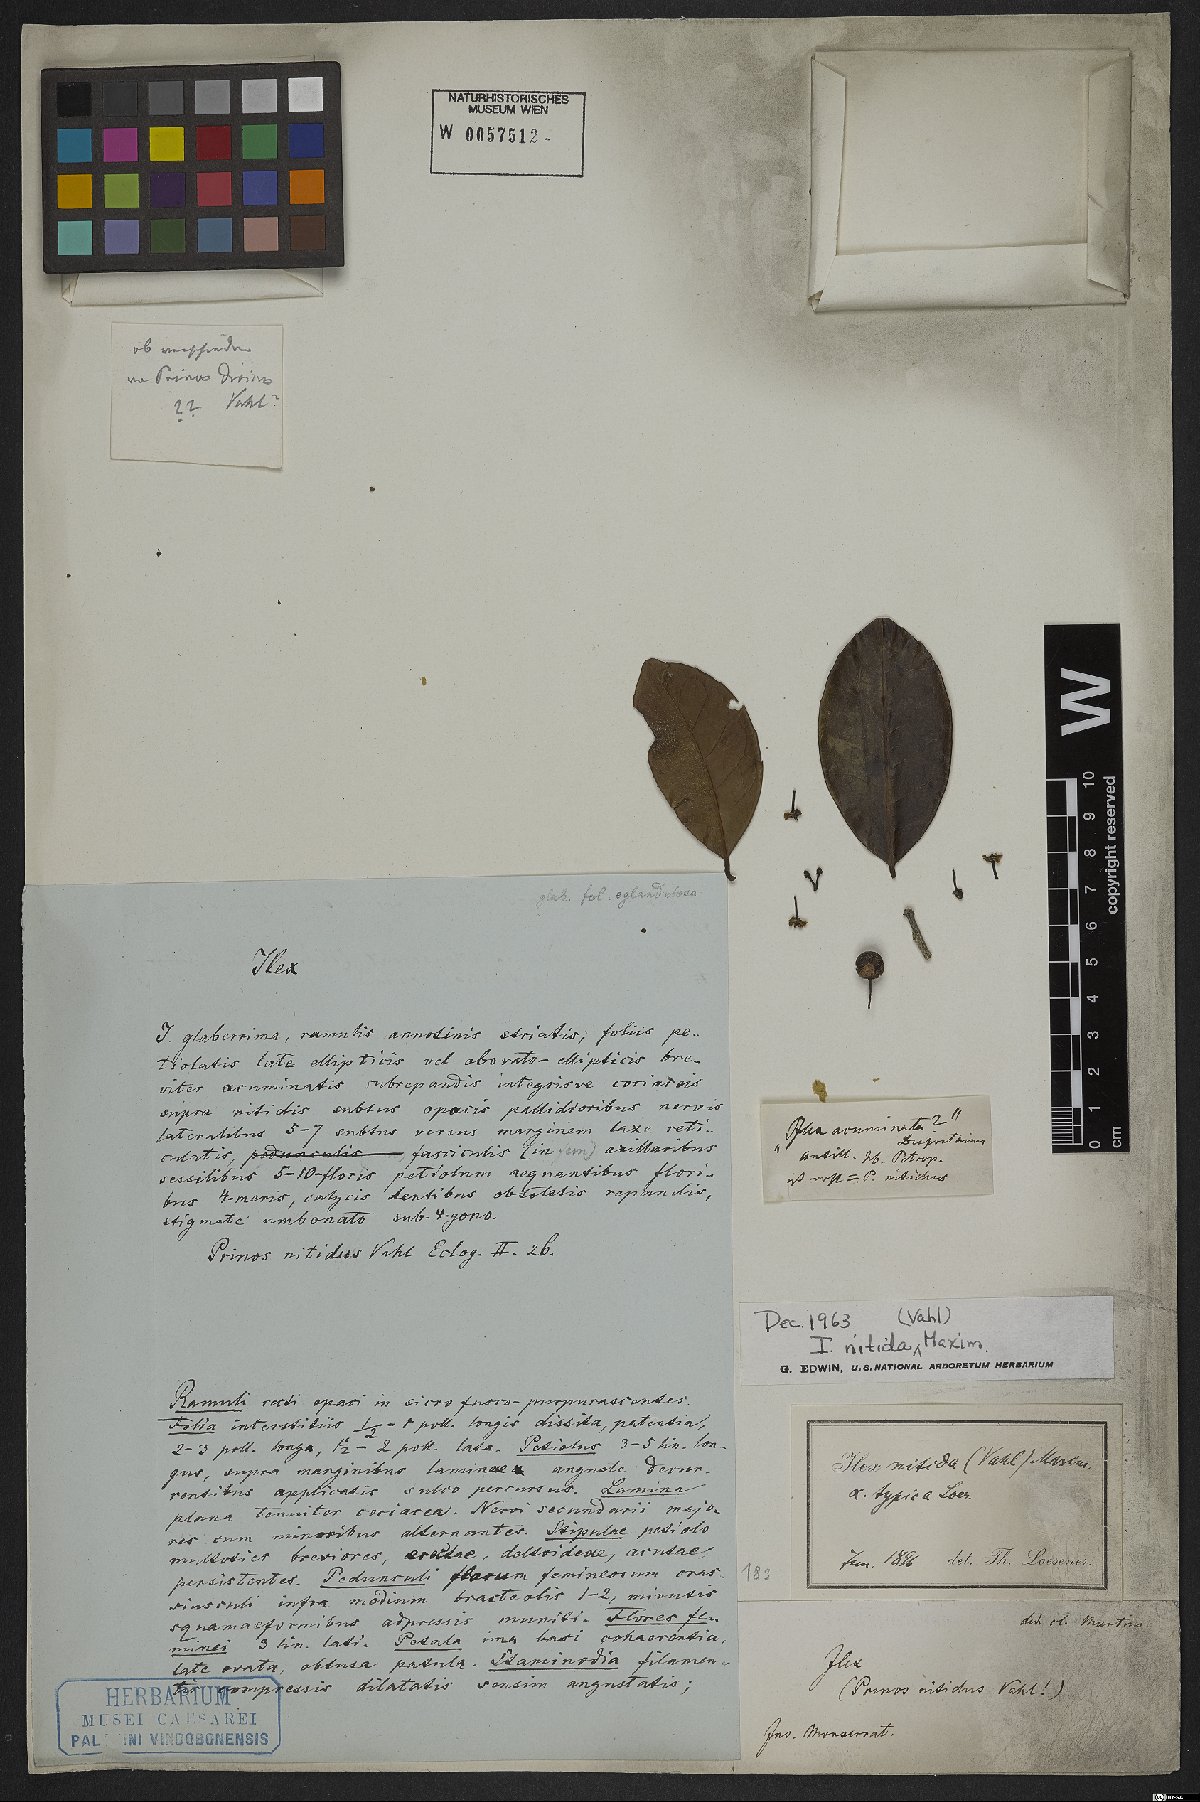 NATURHISTORISCHES
MUSEUM WIEN
W 0057512
ob
Prinos
?? Vahl?
W
copyright reserved
0 1 2 3 4 5 6 7 8 9 10
cm
glab. fol. eglandulosa
Ilex
I. glaberrima, ramulis annotinis striatis, foliis pe-
tiolatis late ellipticis vel obovato-ellipticis bre-
viter acuminatis subrepandis integrisve coriaceis
supra nitidis subtus opacis pallidioribus nervis
lateralibus 5-7 subtus versus marginem laxe reti-
culatis, pedunculis fasciculis (in fem) axillaribus
sessilibus 5-10-floris petiolum aequantibus flori-
bus 4-meris, calycis dentibus obsoletis repandis,
stigmate umbonato sub-4-gono.
Prinos nitidus Vahl Eclog. II. 26.
Ramuli recti opaci in sicco fusco-purpurascentes.
Folia interstitiis ½-1 poll. longis dissita, patentia,
2-3 poll. longa, 1½-2 poll. lata. Petiolus 3-5 lin. lon-
gus, supra marginibus laminae anguste decur-
rentibus applicatis sulco percursus. Lamina
plana tenuiter coriacea. Nervi secundarii majo-
res cum minoribus alternantes. Stipulae petiolo
multoties breviores, deltoideae, acutae,
persistentes. Pedunculi florum femineorum cras-
siusculi infra medium bracteolis 1-2, minutis
squamaeformibus adpressis muniti. Flores fe-
minei 3 lin. lati. Petala ima basi cohaerentia,
late ovata, obtusa patula. Staminodia filamen-
tis compressis dilatatis sensim angustatis;
HERBARIUM
MUSEI CAESAREI
PALATINI VINDOBONENSIS
"Ilex acuminata?"
antill. Hb. Petrop.
= P. nitidus
Dec. 1963 (Vahl)
I. nitida ^ Maxim.
G. EDWIN, U.S. NATIONAL ARBORETUM HERBARIUM
Ilex nitida (Vahl) Maxim.
α. typica Loes.
Jan. 1896 det. Th. Loesener.
183
ded. cl. Martius
Ilex
(Prinos nitidus Vahl!)
Ins. Monserrat.